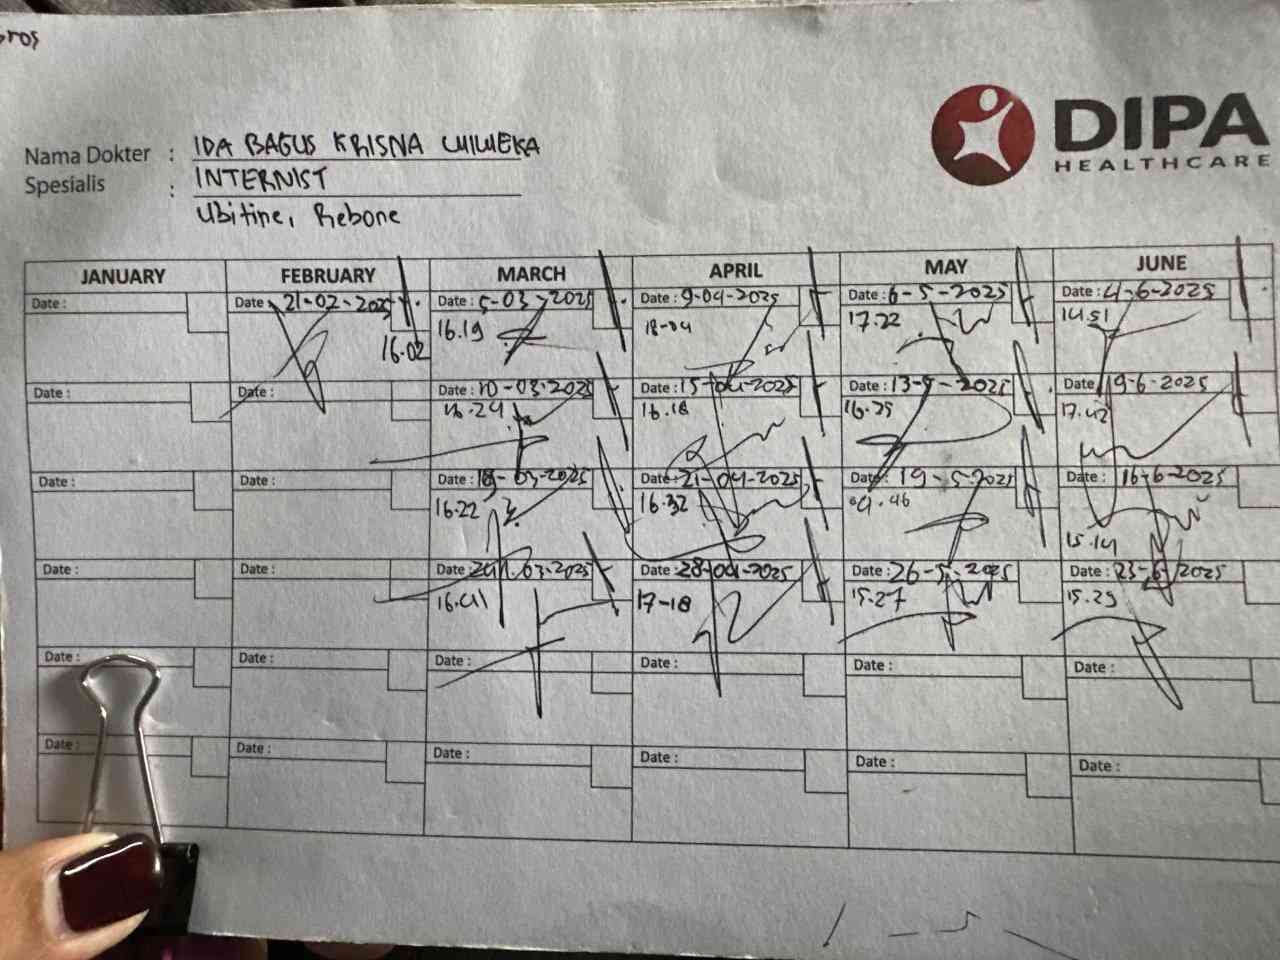 DIPA
HEALTHCARE
Nama Dokter : IDA BAGUS KRISNA WIWEKA
Spesialis : INTERNIST
Ubitine, Rebone
JANUARY FEBRUARY MARCH APRIL MAY JUNE
Date : Date : 21-02-2025 Date : 5-03-2025 Date : 9-04-2025 Date : 6-5-2025 Date : 4-6-2025
16.02 16.19 18-04 17.22 14.51
Date : Date : Date : 10-03-2025 Date : 15-04-2025 Date : 13-5-2025 Date : 9-6-2025
16.24 16.18 16.25 17.42
Date : Date : Date : 18-03-2025 Date : 21-04-2025 Date : 19-5-2025 Date : 16-6-2025
16.22 16.32 15.14
Date : Date : Date : 24.03.2025 Date : 28-04-2025 Date : 26-5-2025 Date : 23-6-2025
16.41 17-18 15.27 15.25
Date : Date : Date : Date : Date : Date :
Date : Date : Date : Date : Date : Date :